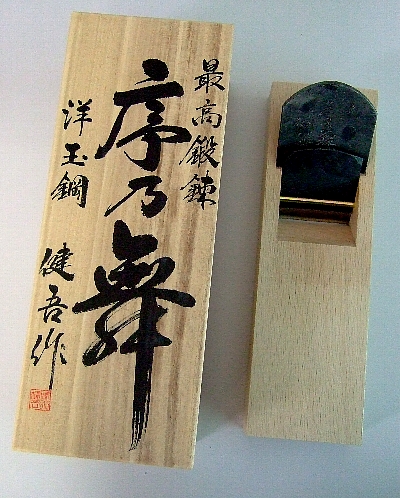 最高鍛錬
序乃舞
洋玉鋼
健吾作